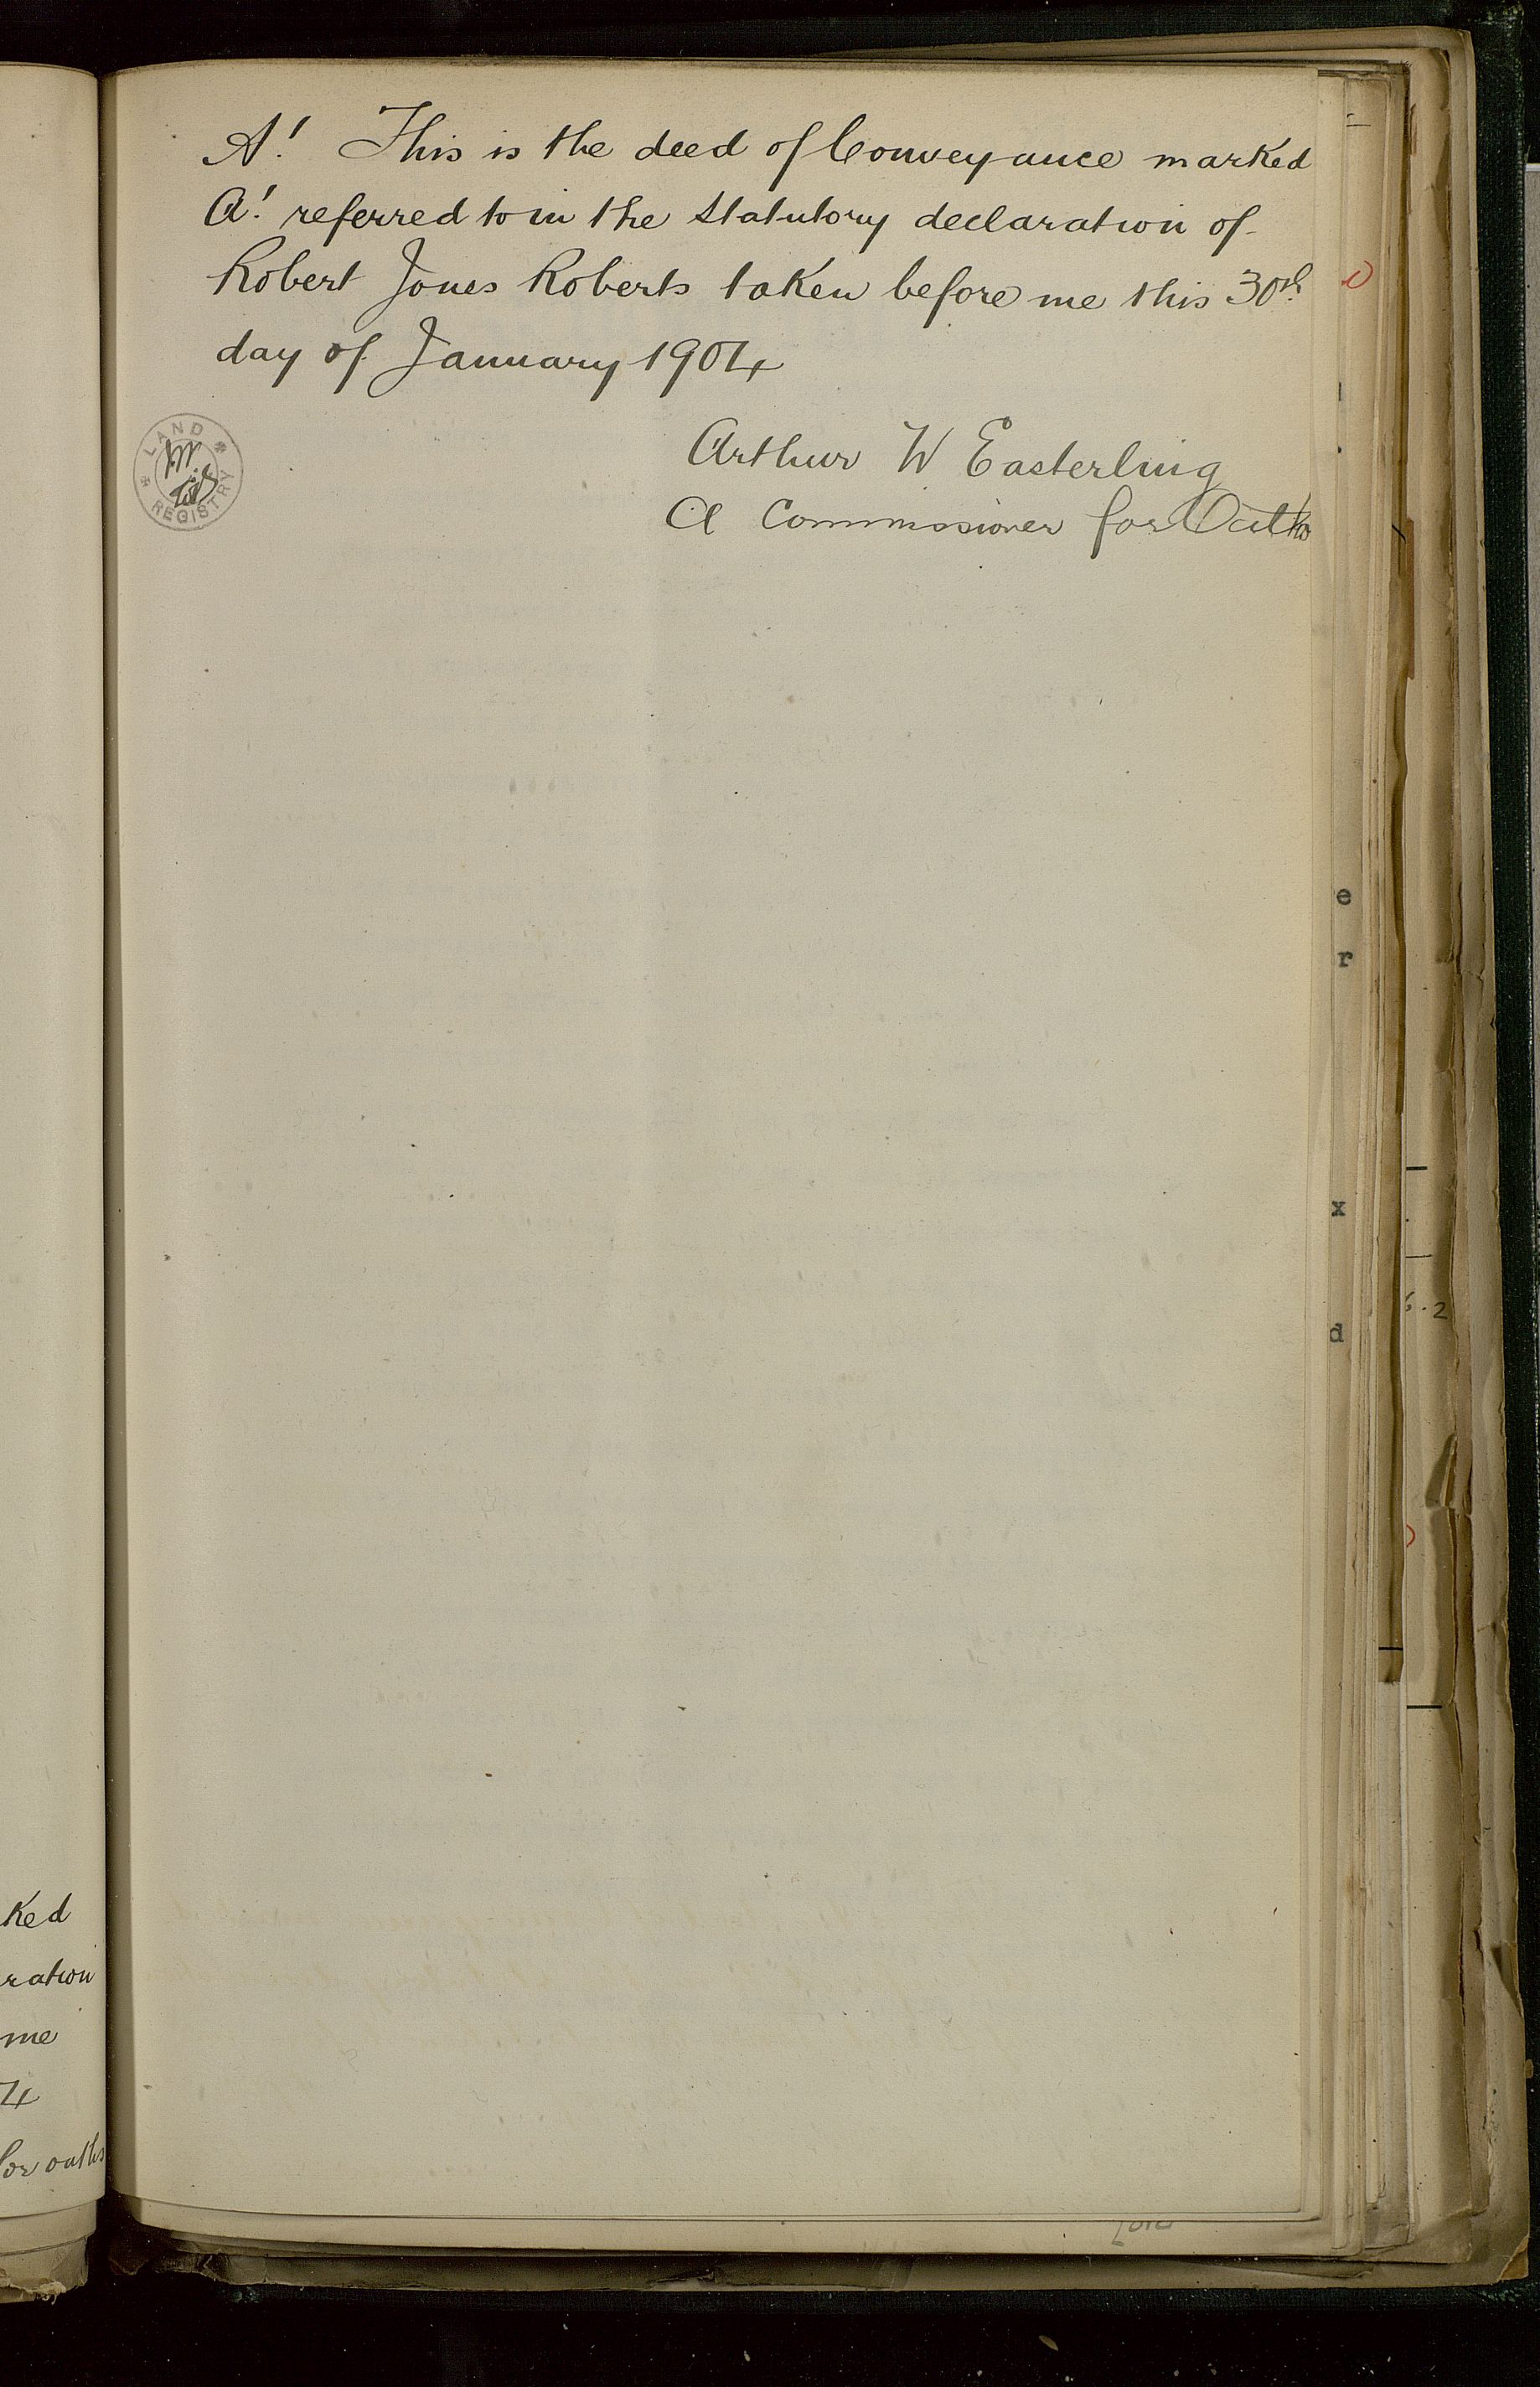 A! This is the deed of Conveyance marked
A! referred to in the Statutory declaration of
Robert Jones Roberts taken before me this 30th
day of January 1904
Arthur W Easterling
A Commissioner for Oaths
LAND
REGISTRY
ked
ration
me
4
for oaths
e
r
x
d